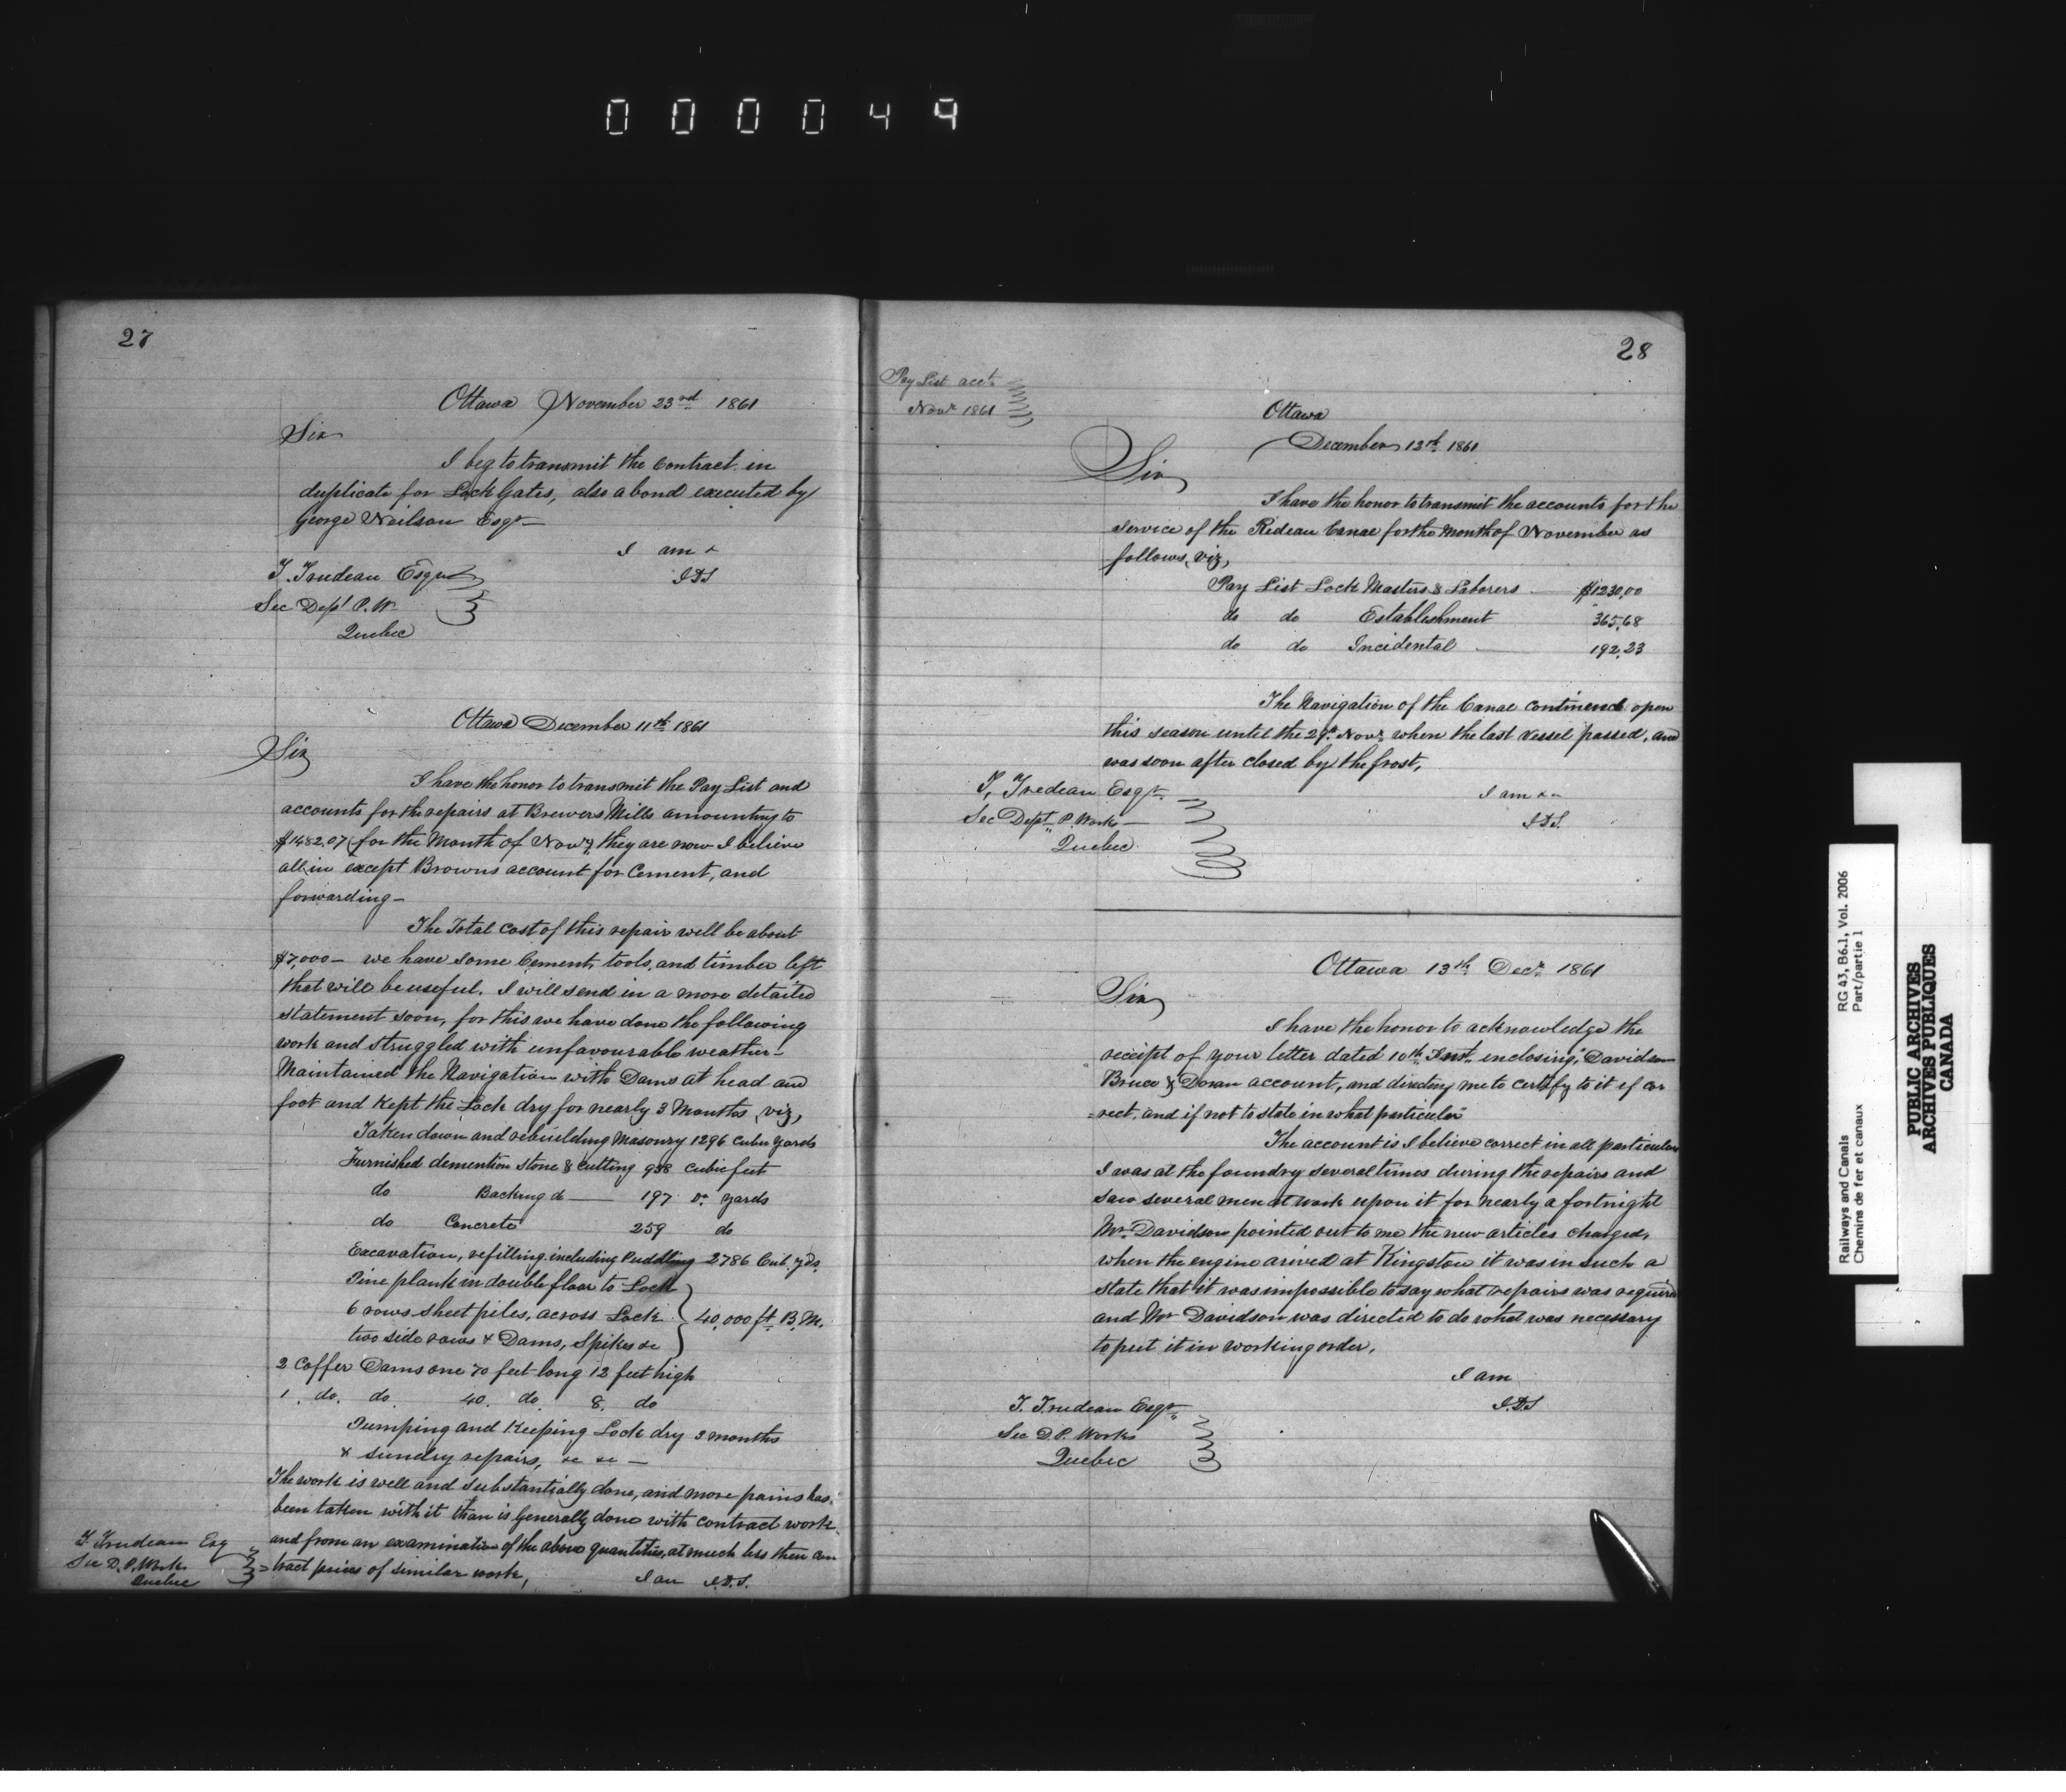 000049
27
Ottawa November 23rd 1861
Sir
I beg to transmit the Contract in
duplicate for Lock Gates, also a bond executed by
George Neilson Esqr
I am &
J.D.S
T. Trudeau Esqr
Sec Dept P.W.
Quebec
Ottawa December 11th 1861
Sir
I have the honor to transmit the Pay List and
accounts for the repairs at Brewers Mills amounting to
$1482.07 for the Month of Novr, they are now I believe
all in except Browns account for Cement, and
forwarding—
The Total cost of this repair will be about
$7,000— we have some Cement, tools, and timber left
that will be useful. I will send in a more detailed
statement soon, for this we have done the following
work and struggled with unfavourable weather—
Maintained the Navigation with Dams at head and
foot and Kept the Lock dry for nearly 3 Months, viz,
Taken down and rebuilding Masonry 1296 Cubic Yards
Furnished demention stone & cutting 988 Cubic feet
do Backing do — 197 Do yards
do Concrete 259 do
Excavation, refilling including Puddling 2786 Cub. yds.
Pine plank in double floor to Lock
6 rows sheet piles, across Lock 40,000 ft B.M.
two side rows & Dams, Spikes &c
2 Coffer Dams one 70 feet long 12 feet high
1. do. do. 40. do. 8. do
Pumping and Keeping Lock dry 3 months
& sundry repairs, &c &c —
The work is well and substantially done, and more pains has
been taken with it than is Generally done with contract work
and from an examination of the above quantities, at much less then con
=tract prices of similar work,
I am J.D.S.
T. Trudeau Esq
Sec D.P. Works
Quebec
28
Pay List acct
Novr 1861
Ottawa
December 12th 1861
Sir
I have the honor to transmit the accounts for the
service of the Rideau Canal for the Month of November as
follows, viz,
Pay List Lock Masters & Laborers — $1230.00
do do Establishment 365.68
do do Incidental — 192.23
The Navigation of the Canal continued open
this season until the 29th Novr when the last vessel passed, and
was soon after closed by the frost,
I am &c
J.D.S.
T. Tredeau Esqr
Sec Dept P. Works —
Quebec
Ottawa 13th Decr 1861
Sir
I have the honor to acknowledge the
receipt of your letter dated 10th Inst. enclosing "Davidson
Bruce & Doran account, and directing me to certify to it if cor
=rect, and if not to state in what particular"
The account is I believe correct in all particulars
I was at the foundry several times during the repairs and
saw several men at work upon it for nearly a fortnight
Mr. Davidson pointed out to me the new articles charged,
when the engine arived at Kingston it was in such a
state that it was impossible to say what repairs was required
and Mr Davidson was directed to do what was necessary
to put it in working order.
I am
J.D.S
T. Trudeau Esqr
Sec D.P. Works
Quebec
Railways and Canals RG 43, B6.1, Vol. 2006
Chemins de fer et canaux Part/partie 1
PUBLIC ARCHIVES
ARCHIVES PUBLIQUES
CANADA